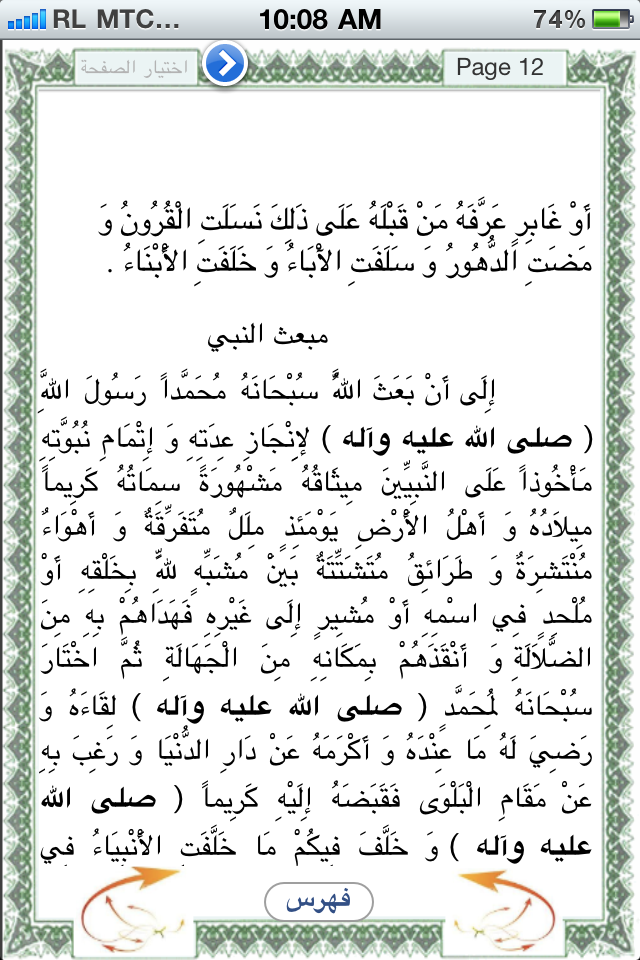 RL MTC... 10:08 AM 74%
اختيار الصفحة Page 12
أَوْ غَابِرٍ عَرَّفَهُ مَنْ قَبْلَهُ عَلَى ذَلِكَ نَسَلَتِ الْقُرُونُ وَ
مَضَتِ الدُّهُورُ وَ سَلَفَتِ الْآبَاءُ وَ خَلَفَتِ الْأَبْنَاءُ .
مبعث النبي
إِلَى أَنْ بَعَثَ اللَّهُ سُبْحَانَهُ مُحَمَّداً رَسُولَ اللَّهِ
( صلى الله عليه وآله ) لِإِنْجَازِ عِدَتِهِ وَ إِتْمَامِ نُبُوَّتِهِ
مَأْخُوذاً عَلَى النَّبِيِّينَ مِيثَاقُهُ مَشْهُورَةً سِمَاتُهُ كَرِيماً
مِيلَادُهُ وَ أَهْلُ الْأَرْضِ يَوْمَئِذٍ مِلَلٌ مُتَفَرِّقَةٌ وَ أَهْوَاءٌ
مُنْتَشِرَةٌ وَ طَرَائِقُ مُتَشَتِّتَةٌ بَيْنَ مُشَبِّهٍ لِلَّهِ بِخَلْقِهِ أَوْ
مُلْحِدٍ فِي اسْمِهِ أَوْ مُشِيرٍ إِلَى غَيْرِهِ فَهَدَاهُمْ بِهِ مِنَ
الضَّلَالَةِ وَ أَنْقَذَهُمْ بِمَكَانِهِ مِنَ الْجَهَالَةِ ثُمَّ اخْتَارَ
سُبْحَانَهُ لِمُحَمَّدٍ ( صلى الله عليه وآله ) لِقَاءَهُ وَ
رَضِيَ لَهُ مَا عِنْدَهُ وَ أَكْرَمَهُ عَنْ دَارِ الدُّنْيَا وَ رَغِبَ بِهِ
عَنْ مَقَامِ الْبَلْوَى فَقَبَضَهُ إِلَيْهِ كَرِيماً ( صلى الله
عليه وآله ) وَ خَلَّفَ فِيكُمْ مَا خَلَّفَتِ الْأَنْبِيَاءُ فِي
فهرس